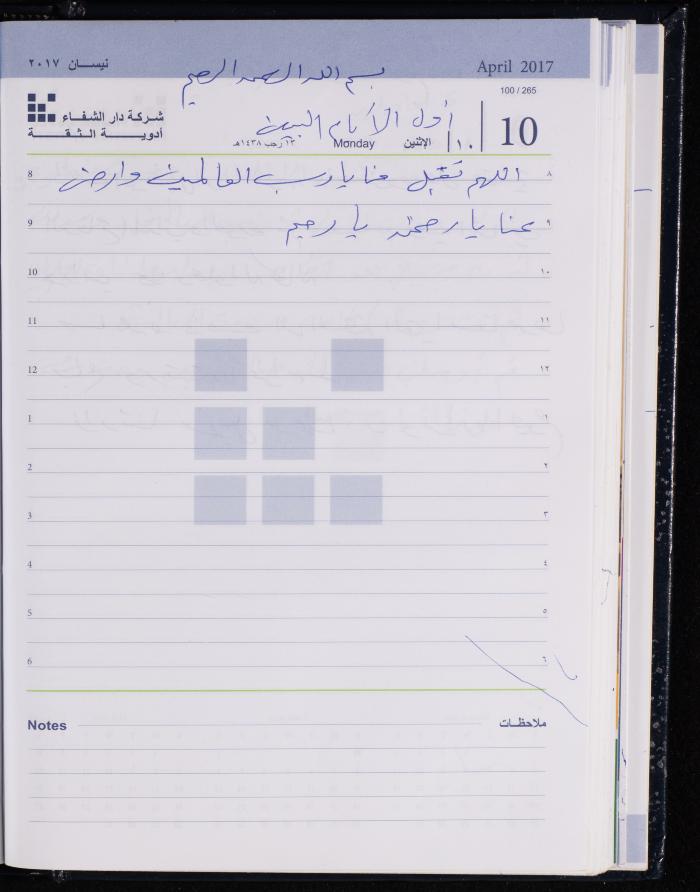 نيسـان ٢٠١٧
April 2017
بسم الله الرحمن الرحيم
100 / 265
شركة دار الشفاء
أدويـــة الـثـقـة
أول الأيام البيض
١٣ رجب ١٤٣٨هـ Monday الإثنين ١٠ 10
8 اللهم تقبل منا يا رب العالمين وارضى ٨
9 عنا يا رحمن يا رحيم ٩
10 ١٠
11 ١١
12 ١٢
1 ١
2 ٢
3 ٣
4 ٤
5 ٥
6 ٦
Notes ملاحظـات